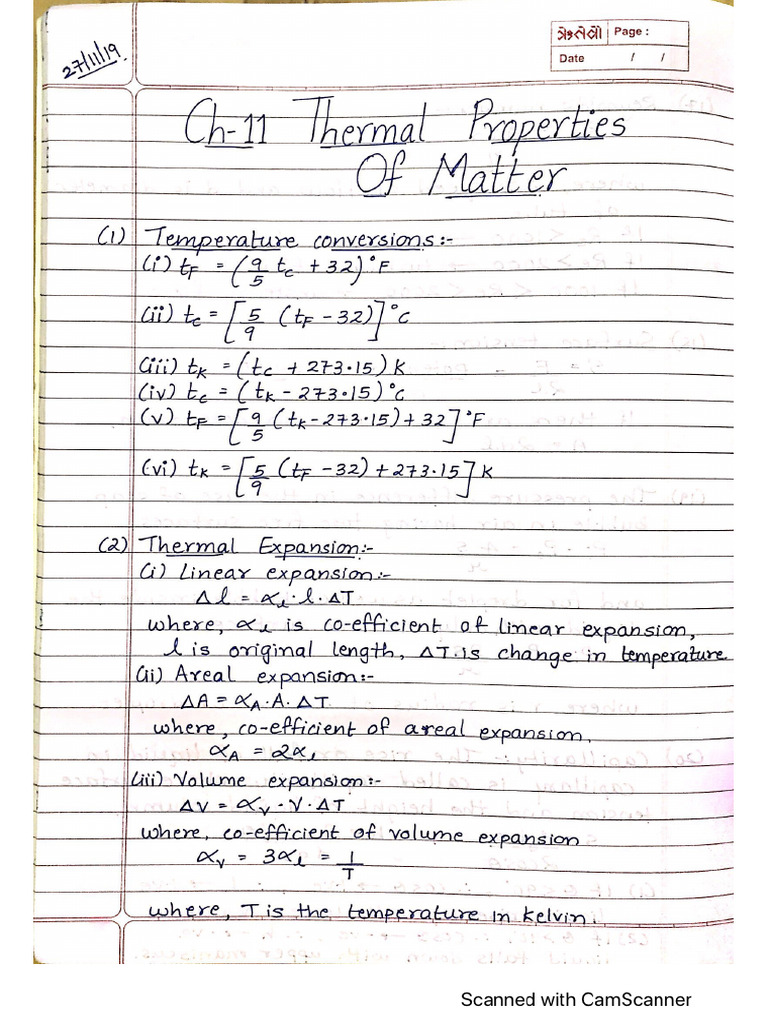 27/11/19
ત્રેકલેબો Page :
Date / /
Ch-11 Thermal Properties
Of Matter
(1) Temperature conversions:-
(i) t_F = (9/5 t_C + 32)°F
(ii) t_C = [5/9 (t_F - 32)]°C
(iii) t_K = (t_C + 273·15) K
(iv) t_C = (t_K - 273·15)°C
(v) t_F = [9/5 (t_K - 273·15) + 32]°F
(vi) t_K = [5/9 (t_F - 32) + 273·15] K
(2) Thermal Expansion:-
(i) Linear expansion:-
Δl = α_l · l · ΔT
where, α_l is co-efficient of linear expansion,
l is original length, ΔT is change in temperature
(ii) Areal expansion:-
ΔA = α_A · A · ΔT
where, co-efficient of areal expansion,
α_A = 2α_l
(iii) Volume expansion:-
ΔV = α_V · V · ΔT
where, co-efficient of volume expansion
α_V = 3α_l = 1/T
where, T is the temperature in Kelvin
Scanned with CamScanner